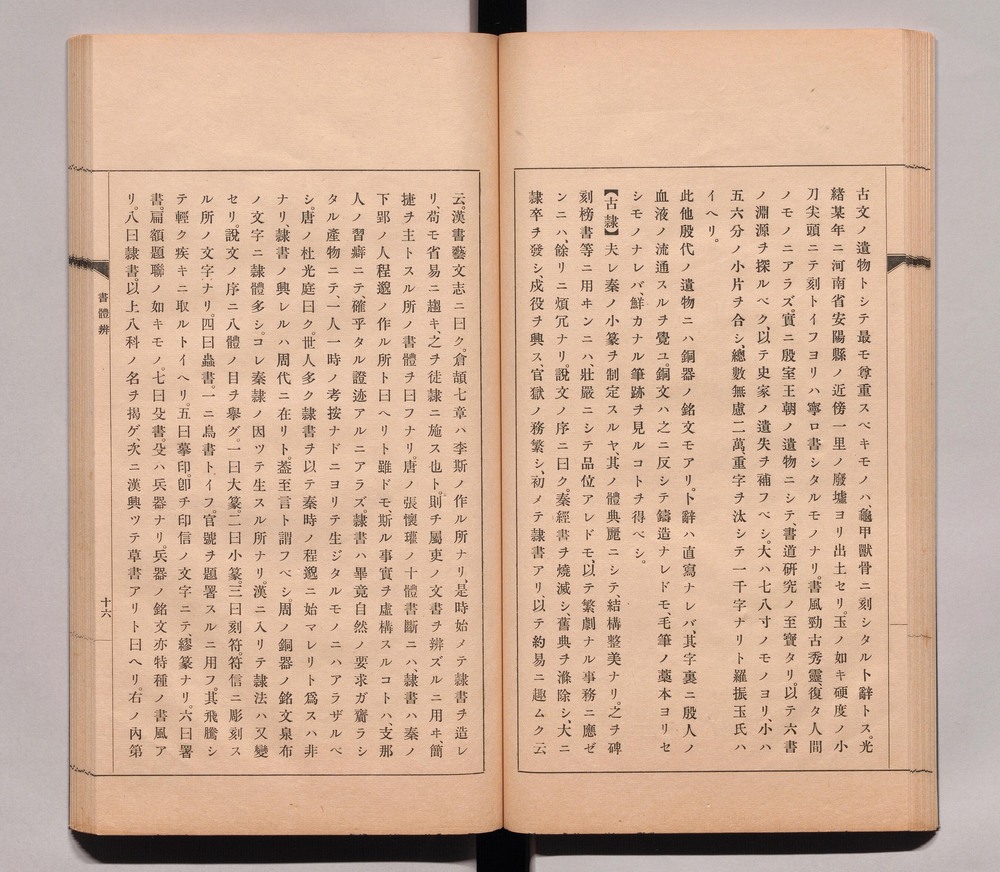 古文ノ遺物トシテ最モ尊重スベキモノハ、龜甲獸骨ニ刻シタル卜辭トス。光
緖某年ニ河南省安陽縣ノ近傍一里ノ廢墟ヨリ出土セリ。玉ノ如キ硬度ノ小
刀尖頭ニテ刻トイフヨリハ寧ロ書シタルモノナリ。書風勁古秀靈、復タ人間
ノモノニアラズ。實ニ殷室王朝ノ遺物ニシテ、書道研究ノ至寶タリ。以テ六書
ノ淵源ヲ探ルベク、以テ史家ノ遺失ヲ補フベシ。大ハ七八寸ノモノヨリ、小ハ
五六分ノ小片ヲ合シ、總數無慮二萬、重字ヲ汰シテ一千字ナリト羅振玉氏ハ
イヘリ。
此他殷代ノ遺物ニハ銅器ノ銘文モアリ。卜辭ハ直寫ナレバ、其字裏ニ殷人ノ
血液ノ流通スルヲ覺ユ。銅文ハ之ニ反シテ鑄造ナレドモ、毛筆ノ藁本ヨリセ
シモノナレバ、鮮カナル筆跡ヲ見ルコトヲ得ベシ。
【古隸】夫レ秦ノ小篆ヲ制定スルヤ、其ノ體典麗ニシテ、結構整美ナリ。之ヲ碑
刻榜書等ニ用ヰンニハ、壯嚴ニシテ品位アレドモ、以テ繁劇ナル事務ニ應ゼ
ンニハ、餘リニ煩冗ナリ。說文ノ序ニ曰ク。秦經書ヲ燒滅シ、舊典ヲ滌除シ、大ニ
隸卒ヲ發シ、戍役ヲ興ス、官獄ノ務繁シ、初メテ隸書アリ、以テ約易ニ趣ムク云
云。漢書藝文志ニ曰ク。倉頡七章ハ李斯ノ作ル所ナリ、是時始メテ隸書ヲ造レ
リ、荀モ省易ニ趨キ、之ヲ徒隸ニ施ス也ト。則チ屬吏ノ文書ヲ辨ズルニ用ヰ、簡
捷ヲ主トスル所ノ書體ヲ曰フナリ。唐ノ張懷瓘ノ十體書斷ニハ、隸書ハ秦ノ
下邽ノ人程邈ノ作ル所ト曰ヘリト雖ドモ斯ル事實ヲ虛構スルコトハ、支那
人ノ習癖ニテ確乎タル證迹アルニアラズ。隸書ハ畢竟自然ノ要求ガ齎ラシ
タル產物ニテ、一人一時ノ考按ナドニヨリテ生ジタルモノニハアラザルベ
シ。唐ノ杜光庭曰ク。世人多ク隸書ヲ以テ秦時ノ程邈ニ始マレリト爲スハ非
ナリ、隸書ノ興レルハ周代ニ在リト。蓋至言ト謂フベシ。周ノ銅器ノ銘文泉布
ノ文字ニ隸體多シ。コレ秦隸ノ因ツテ生スル所ナリ。漢ニ入リテ隸法ハ又變
セリ。說文ノ序ニ八體ノ目ヲ擧グ。一曰大篆。二曰小篆。三曰刻符。符信ニ彫刻ス
ル所ノ文字ナリ。四曰蟲書。一ニ鳥書トイフ。官號ヲ題署スルニ用フ。其飛騰シ
テ輕ク疾キニ取ルトイヘリ。五曰摹印。卽チ印信ノ文字ニテ、繆篆ナリ。六曰署
書。扁額題聯ノ如キモノ。七曰殳書。殳ハ兵器ナリ。兵器ノ銘文亦特種ノ書風ア
リ。八曰隸書。以上八科ノ名ヲ揭ゲ、次ニ漢興ツテ草書アリト曰ヘリ。右ノ內第
書體辨
十六